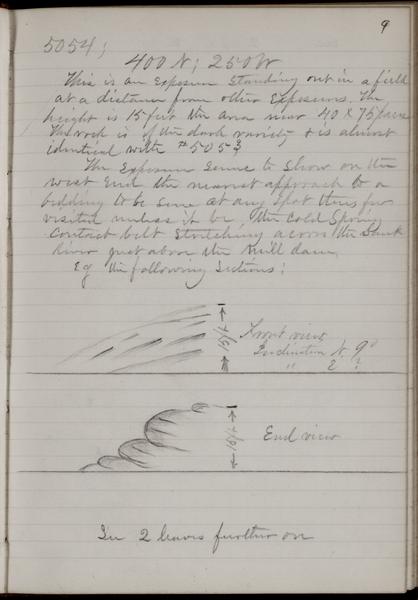 9
5054;
400 N; 250 W
This is an exposure standing out in a field
at a distance from other exposures. The
height is 15 feet the area near 40 x 75 paces
The rock is of the dark variety & is almost
identical with #5053
The exposure seems to show on the
west end the nearest approach to a
bedding to be seen at any spot thus far
visited unless it be the Cold Spring
Contact belt stretching across the Sauk
River just above the Mill dam,
Eg the following sections:
Front view
Inclination N. 9°
" E ?
15 ft
End view
15 ft
See 2 leaves further on